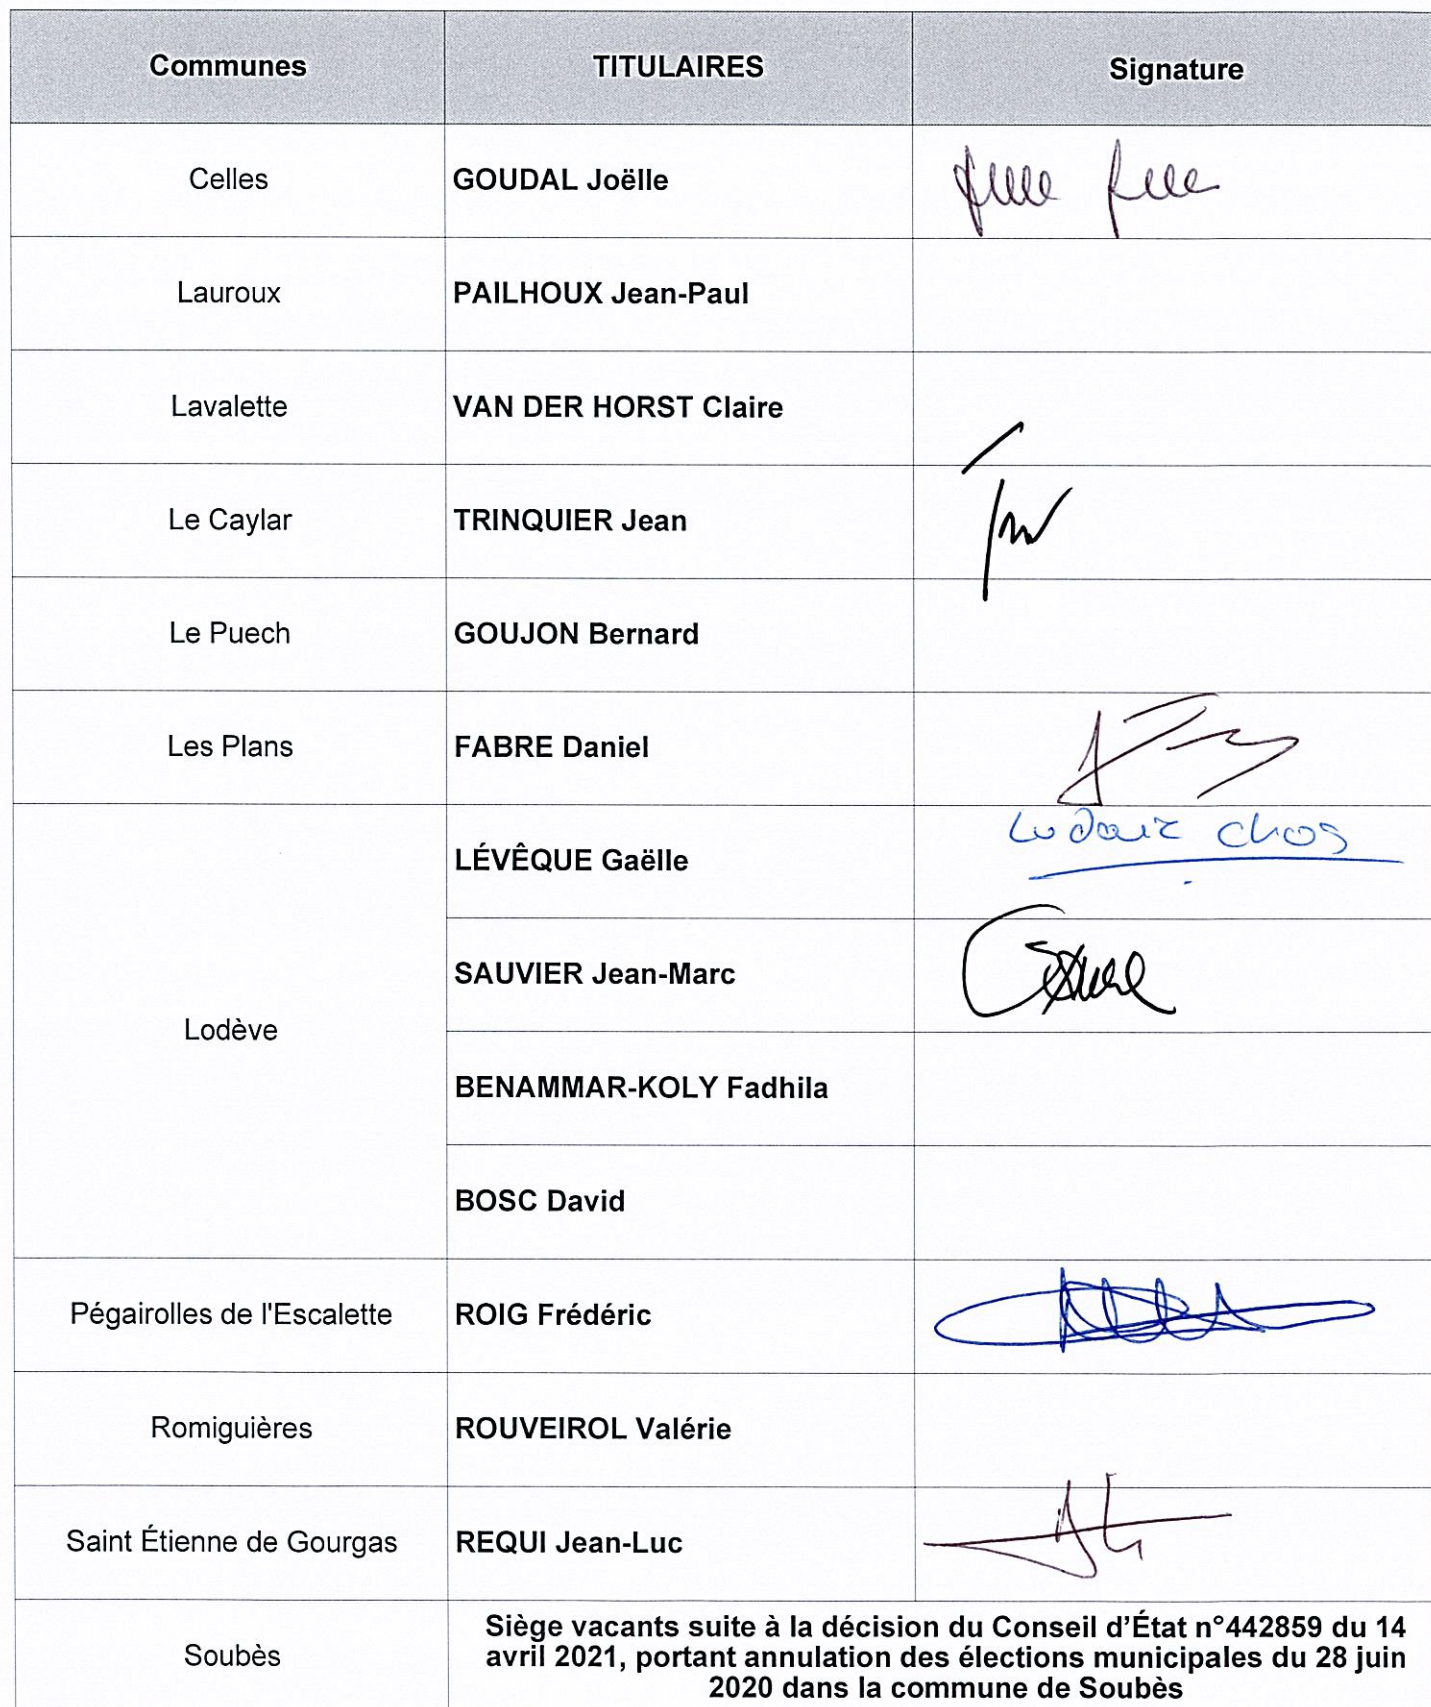 Communes TITULAIRES Signature
Celles GOUDAL Joëlle
Lauroux PAILHOUX Jean-Paul
Lavalette VAN DER HORST Claire
Le Caylar TRINQUIER Jean
Le Puech GOUJON Bernard
Les Plans FABRE Daniel
LÉVÊQUE Gaëlle
SAUVIER Jean-Marc
Lodève
BENAMMAR-KOLY Fadhila
BOSC David
Pégairolles de l'Escalette ROIG Frédéric
Romiguières ROUVEIROL Valérie
Saint Étienne de Gourgas REQUI Jean-Luc
Soubès
Siège vacants suite à la décision du Conseil d'État n°442859 du 14
avril 2021, portant annulation des élections municipales du 28 juin
2020 dans la commune de Soubès